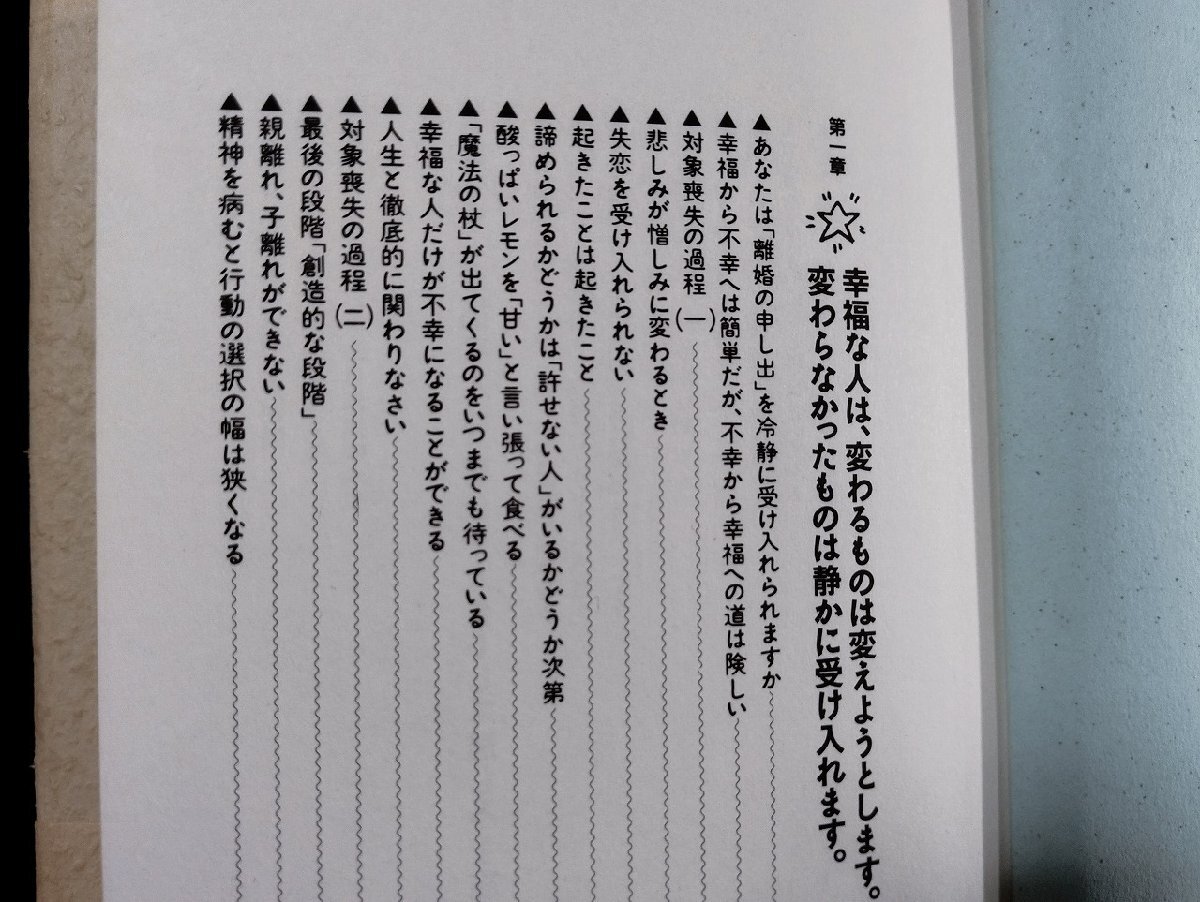 第一章
幸福な人は、変わるものは変えようとします。
変わらなかったものは静かに受け入れます。
▲あなたは「離婚の申し出」を冷静に受け入れられますか
▲幸福から不幸へは簡単だが、不幸から幸福への道は険しい
▲対象喪失の過程(一)
▲悲しみが憎しみに変わるとき
▲失恋を受け入れられない
▲起きたことは起きたこと
▲諦められるかどうかは「許せない人」がいるかどうか次第
▲酸っぱいレモンを「甘い」と言い張って食べる
▲「魔法の杖」が出てくるのをいつまでも待っている
▲幸福な人だけが不幸になることができる
▲人生と徹底的に関わりなさい
▲対象喪失の過程(二)
▲最後の段階「創造的な段階」
▲親離れ、子離れができない
▲精神を病むと行動の選択の幅は狭くなる